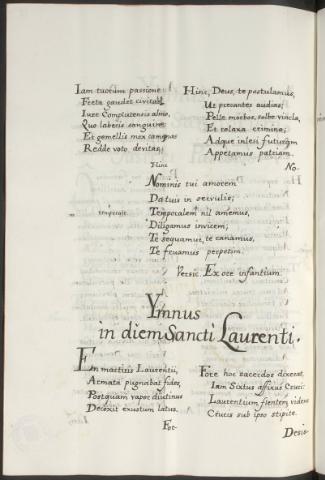 Iam tuorum passione
Festa gaudet civitas,
Iure Complutensis almo,
Quo laberis sanguine
Et gemellis mox camenas
Redde voto devitas;
Hinc
Hinc, Deus, te postulamus,
Ut precantes audias;
Pelle morbos, solve vincla,
Et relaxa crimina;
Adque inlesi futurum
Appetamus patriam.
No-
Nominis tui amorem
Da tuis in servulis;
temporale. Temporalem nil amemus,
Diligamus invicem;
Te sequamur, te canamus,
Te fruamur perpetim.
Versic. Ex ore infantium.
Ymnus
in diem Sancti Laurenti.
En martiris Laurentii,
Armata pugnabat fides,
Postquam vapor diutinus
Decoxit exustum latus.
For-
Fore hoc sacerdos dixerat
Iam Sixtus affixus Cruci
Laurentium flentem videns
Crucis sub ipso stipite.
Desis-